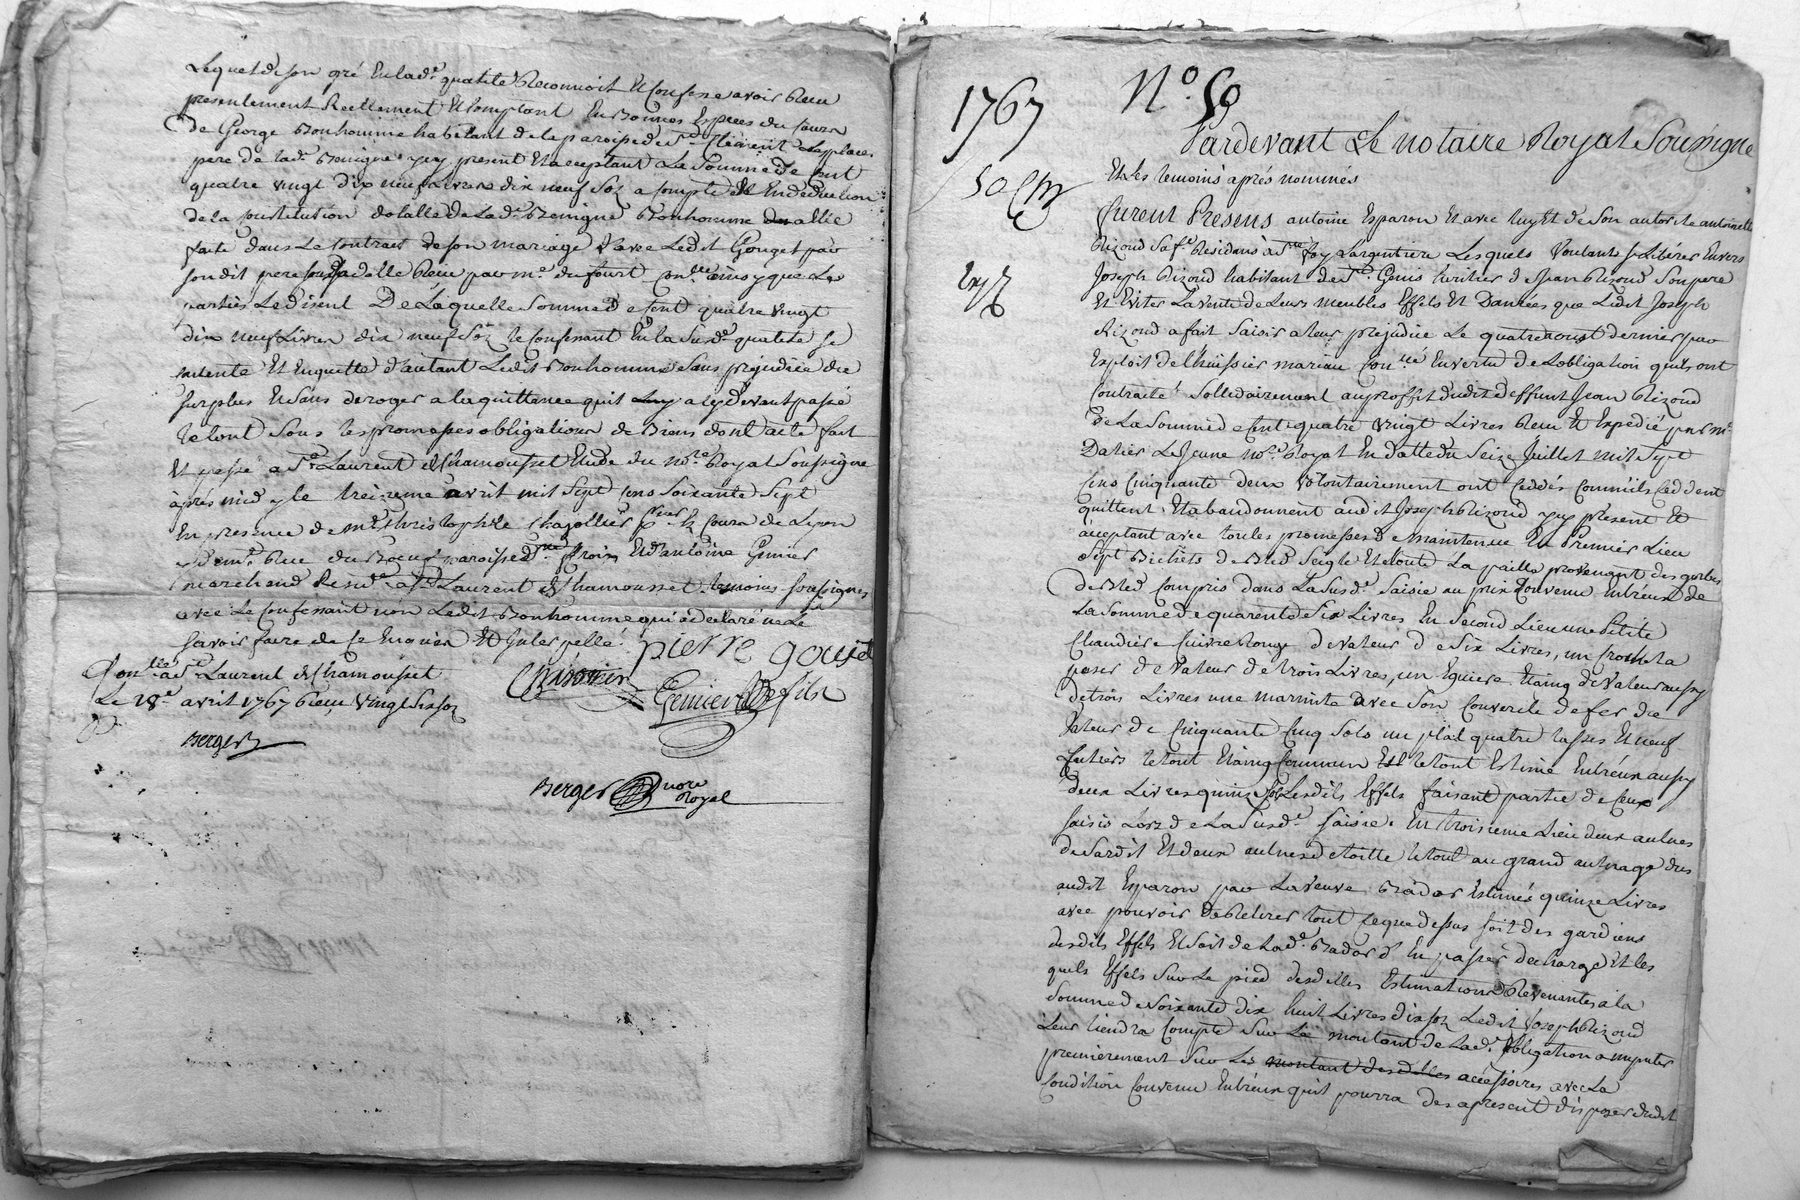 Lequel de son gré en lade. qualité Reconnoit et Confesse avoir Reçu
presentement Reellement et Comptant en Bonnes Especes du Cours
De George Bonhomme habitant de la paroisse de St. Clement
pere de lad. Benigne icy present et acceptant La Somme de Cent
quatre vingt Dix neuf Livres dix neuf Sols a Compte et En deduction
de la Constitution dotalle de Lade. Benigne Bonhomme
faite dans Le Contract de son mariage avec Ledit Gouget par
sondit pere Reçu par Me. dufourt ainsy que Les
parties Le disent De Laquelle Somme de Cent quatre vingt
dix neuf Livres dix neuf Sols le Confessant En la Susde. qualité se
Contente Et Enquitte d'autant Ledit Bonhomme Sans prejudice du
surplus Et Sans deroger a la quittance quil Luy a cy devant passé
le tout Sous les promesses obligations de Biens dont acte fait
Et passé a St. Laurent de Chamousset Etude du Nore. Royal Soussigné
après midy le treizieme avril mil Sept Cens Soixante Sept
En presence de Me. Christophle Chazollier pcur. Es Cours de Lyon
y demt. Rue du Boeuf paroisse Ste. Croix Et d'antoine Genier
marchand Reside. a St. Laurent de Chamousset temoins soussignés
avec Le Confessant non Ledit Bonhomme qui a declaré ne Le
savoir faire de Ce Enquis Et Interpellé.
pierre gouget
Genier fils
Contlé a St. Laurent de Chamousset
Le 18e. avril 1767 Reçu vingt six sols
Berger
Berger nore
Royal
1767
No. 59
Pardevant Le notaire Royal Soussigné
Et Les temoins après nommés
furent Presens antoine Esparon Et avec luy Et de Son autorité antoinette
Rizoud Sa fe. Residans à Ste foy Largentiere Lesquels Voulants se Liberer Envers
Joseph Rizoud habitant de St. Genis heritier de Jean Rizoud Son pere
Et Eviter La vente de Leurs meubles Effets Et Danrées que Ledit Joseph
Rizoud a fait Saisir a leur prejudice Le quatre aoust dernier par
Exploit de l'huissier mariau En vertu de Lobligation quils ont
Contracté Sollidairement au proffit dudit deffunt Jean Rizoud
De La Somme de Cent quatre vingt Livres Reçu Et Expedié par Me.
Dalier Le Jeune nore. Royal En datte du Seize Juillet mil Sept
Cens Cinquante deux Volontairement ont Ceddés Comm'ils Ceddent
quittent Et abandonnent audit Joseph Rizoud icy present Et
acceptant avec toutes promesses de maintenue En Premier Lieu
Sept Bichets de Bled Seigle Et toute La paille provenant des gerbes
de Bled Compris dans La Susde. Saisie au prix Convenu Entr'eux de
La Somme de quarente Six Livres En Second Lieu une Petite
Chaudiere Cuivre Rouge de valeur de Six Livres, un
de valeur de trois Livres, un Eguiere Etaing de Valeur aussy
de trois Livres une marmite avec Son Couvercle de fer de
valeur de Cinquante Cinq Sols un plat quatre tasses Et neuf
le tout Etaing Commun Et le tout Estimé Entr'eux aussy
deux Livres quinze Sols Lesdits Effets faisant partie de Ceux
saisis Lors de La Susde. saisie. En troisieme Lieu deux aulnes
de Sardit Et deux aulnes de toille le tout au grand aulnage dus
audit Esparon par La veuve Badar Estimés quinze Livres
avec pouvoir de Retirer tout Ce que dessus soit des gardiens
desdits Effets Et Soit de Lade. Badar d'En passer decharge Et les
quels Effets Sur Le pied desdittes Estimations Revenantes à la
Somme de Soixante dix huit Livres dix sols Ledit Joseph Rizoud
Leur tiendra Compte Sur Le montant de Lade. obligation a imputer
premierement sur Les montant desdittes accéssoires avec La
Condition Convenu Entr'eux quil pourra des apresent disposer dudit